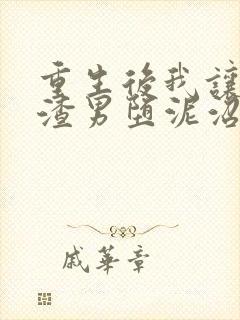 重生後我讓
渣男墮泥沼
戚華章